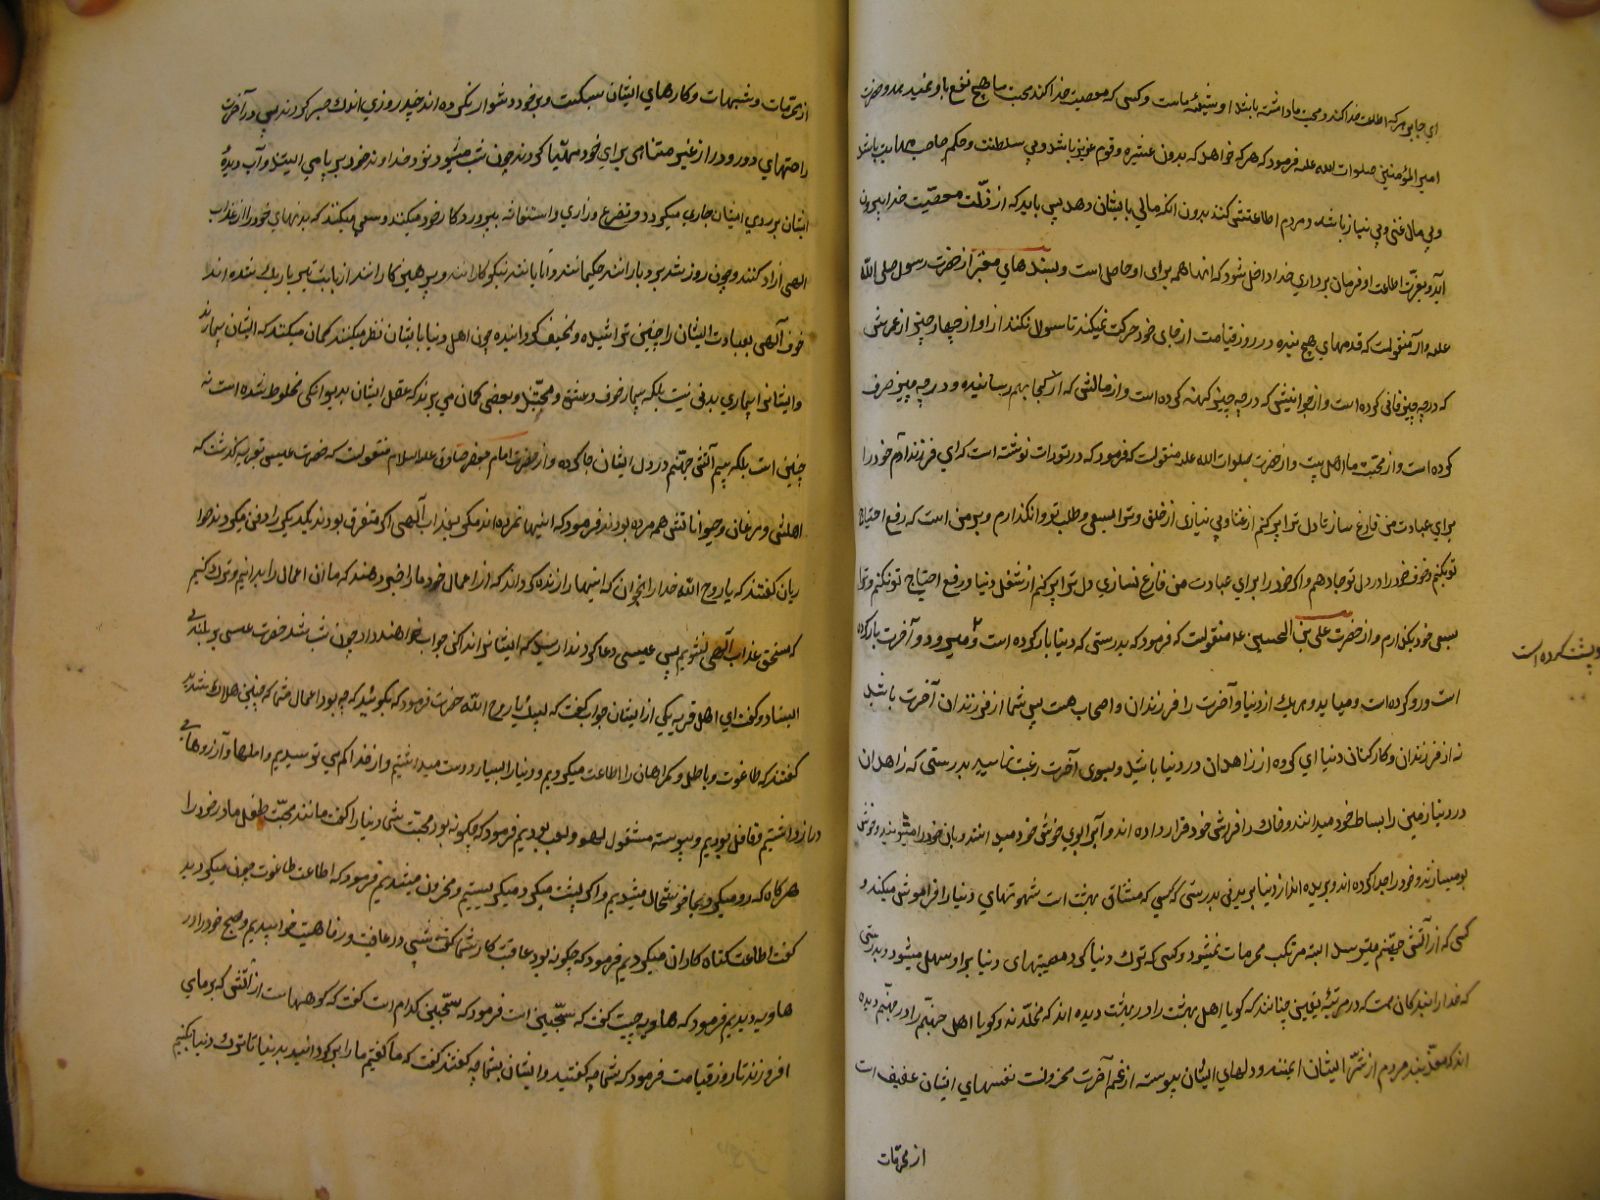 ای جابر هر که اطاعت خدا کند و محبت ما داشته باشد او شیعهٔ ماست و کسی که معصیت خدا کند محبت ما هیچ نفع باو نمیدهد و حضرت
امیر المؤمنین صلوات الله علیه فرمود که هر که خواهد که بدون عشیره و قوم عزیز باشد و بی سلطنت و حکم صاحب مهابت باشد
و بی مال غنی و بی نیاز باشد و مردم اطاعتش کنند بدون آنکه مالی بایشان دهد پس باید که از ذلّت معصیت خدا بیرون
آید و بعزّت اطاعت او و فرمان برداری خدا داخل شود که اینها همه برای او حاصل است و بسندهای معتبر از حضرت رسول صلی الله
علیه و آله منقولست که قدمهای هیچ بنده در روز قیامت از جای خود حرکت نمیکند تا سوال نکنند از او از چهار چیز از عمرش
که در چه چیز فانی کرده است و از جوانیش که در چه چیز کهنه کرده است و از مالش که از کجا بهم رسانیده و در چه چیز صرف
کرده است و از محبت ما اهل بیت و از حضرت صلوات الله علیه منقولست که فرمود که در تورات نوشته است که ای فرزند آدم خود را
برای عبادت من فارغ ساز تا دل ترا پر کنم از غنا و بی نیازی از خلق و ترا بسعی و طلب تو وانگذارم و بر من است که رفع احتیاج
تو بکنم و خوف خود را در دل تو جا دهم و اگر خود را برای عبادت من فارغ نسازی دل ترا پر کنم از شغل دنیا و رفع احتیاج تو نکنم و ترا
بسعی خود بگذارم و از حضرت علی بن الحسین علیه منقولست که فرمود که بدرستی که دنیا بار کرده است و میرود و آخرت بار کرده
و پشت کرده است
است و رو کرده است و میاید و هر یک از دنیا و آخرت را فرزندان و اصحاب هست پس شما از فرزندان آخرت باشید
نه از فرزندان و کارکنان دنیا ای گروه از زاهدان در دنیا باشید و بسوی آخرت رغبت نمایید بدرستی که زاهدان
در دنیا زمین را بساط خود میدانند و خاک را فراش خود قرار داده اند و آب را بوی خوش خود میدانند و بآن خود را میشویند و خوش
بو میسازند و خود را جدا کرده اند و بریده اند از دنیا بریدنی بدرستی که کسی که مشتاق بهشت است شهوتهای دنیا را فراموش میکند و
کسی که از آتش جهنم میترسد البته مرتکب محرمات نمیشود و کسی که ترک دنیا کرد مصیبتهای دنیا بر او سهل میشود و بدرستی
که خدا را بندگان هست که در مرتبهٔ یقین چنانند که گویا اهل بهشت را در بهشت دیده اند که مخلّدند و گویا اهل جهنّم را در جهنّم دیده
اند که معذّبند مردم از شرّ ایشان ایمنند و دلهای ایشان پیوسته از غم آخرت محزونست نفسهای ایشان عفیف است
از محرمات
از محرمات و شبهات و کارهای ایشان سبکست و بر خود دشوار نکرده اند چند روزی اندک صبر کردند پس در آخرت
راحتهای دور و دراز غیر متناهی برای خود مهیّا کردند چون شب میشود نزد خداوند خود بر پا می ایستند و آب دیدهٔ
ایشان بر روی ایشان جاری میگردد و تضرع و زاری و استغاثه بپروردگار خود میکنند و سعی میکنند که بدنهای خود را از عذاب
الهی آزاد کنند و چون روز شد بردبارانند حکیمانند دانایانند نیکوکارانند و پرهیزکارانند از بابت تیر باریک شده اند
خوف الهی و عبادت ایشان را چنین تراشیده و نحیف گردانیده چون اهل دنیا بایشان نظر میکنند گمان میکنند که ایشان بیمارند
و ایشانرا بیماری بدنی نیست بلکه بیمار خوف و عشق و محبّتند و بعضی گمان می برند که عقل ایشان بدیوانگی مخلوط شده است نه
چنین است بلکه بیم آتش جهنّم در دل ایشان جا کرده و از حضرت امام جعفر صادق علیه السلام منقولست که حضرت عیسی بقریه گذشت که
اهلش و مرغان و حیواناتش همه مرده بودند فرمود که اینها نمرده اند مگر بعذاب آلهی اگر متفرق بودند یکدیگر را دفن میکردند حوا
ریان گفتند که یا روح الله خدا را بخوان که اینها را زنده گرداند که از اعمال خود ما را خبر دهند که ما آن اعمال را بدانیم و ترک کنیم
که مستحق عذاب آلهی نشویم پس عیسی دعا کرد ندا رسید که ایشانرا ندا کن جواب خواهند داد چون شب شد حضرت عیسی بر بلندی
ایستاد و گفت ای اهل قریه یکی از ایشان جواب گفت که لبیک یا روح الله حضرت فرمود که بگوئید که چه بود اعمال شما که چنین هلاک شدید
گفتند که طاغوت و باطل و گمراهان را اطاعت میکردیم و دنیا را بسیار دوست میداشتیم و از خدا کم می ترسیدیم و املها و آرزوهای
دراز داشتیم و غافل بودیم و پیوسته مشغول لهو و لعب بودیم فرمود که چگونه بود محبت شما دنیا را گفت مانند محبّت طفل مادر خود را
هر گاه که رو میکرد بما خوشحال میشدیم و اگر پشت میکرد میگریستیم و محزون میشدیم فرمود که اطاعت طاغوت چون میکردید
گفت اطاعت گناه کاران میکردیم فرمود که چگونه بود عاقبت کار شما گفت شبی در عافیت و رفاهیت خوابیدیم و صبح خود را در
هاویه دیدیم فرمود که هاویه چیست گفت که سجّین است فرمود که سجّین کدام است گفت که کوههاست از آتش که بر ما می
افروزند تا روز قیامت فرمود که شما چه گفتید و ایشان بشما چه گفتند گفت که ما گفتیم ما را برگردانید بدنیا تا ترک دنیا بکنیم